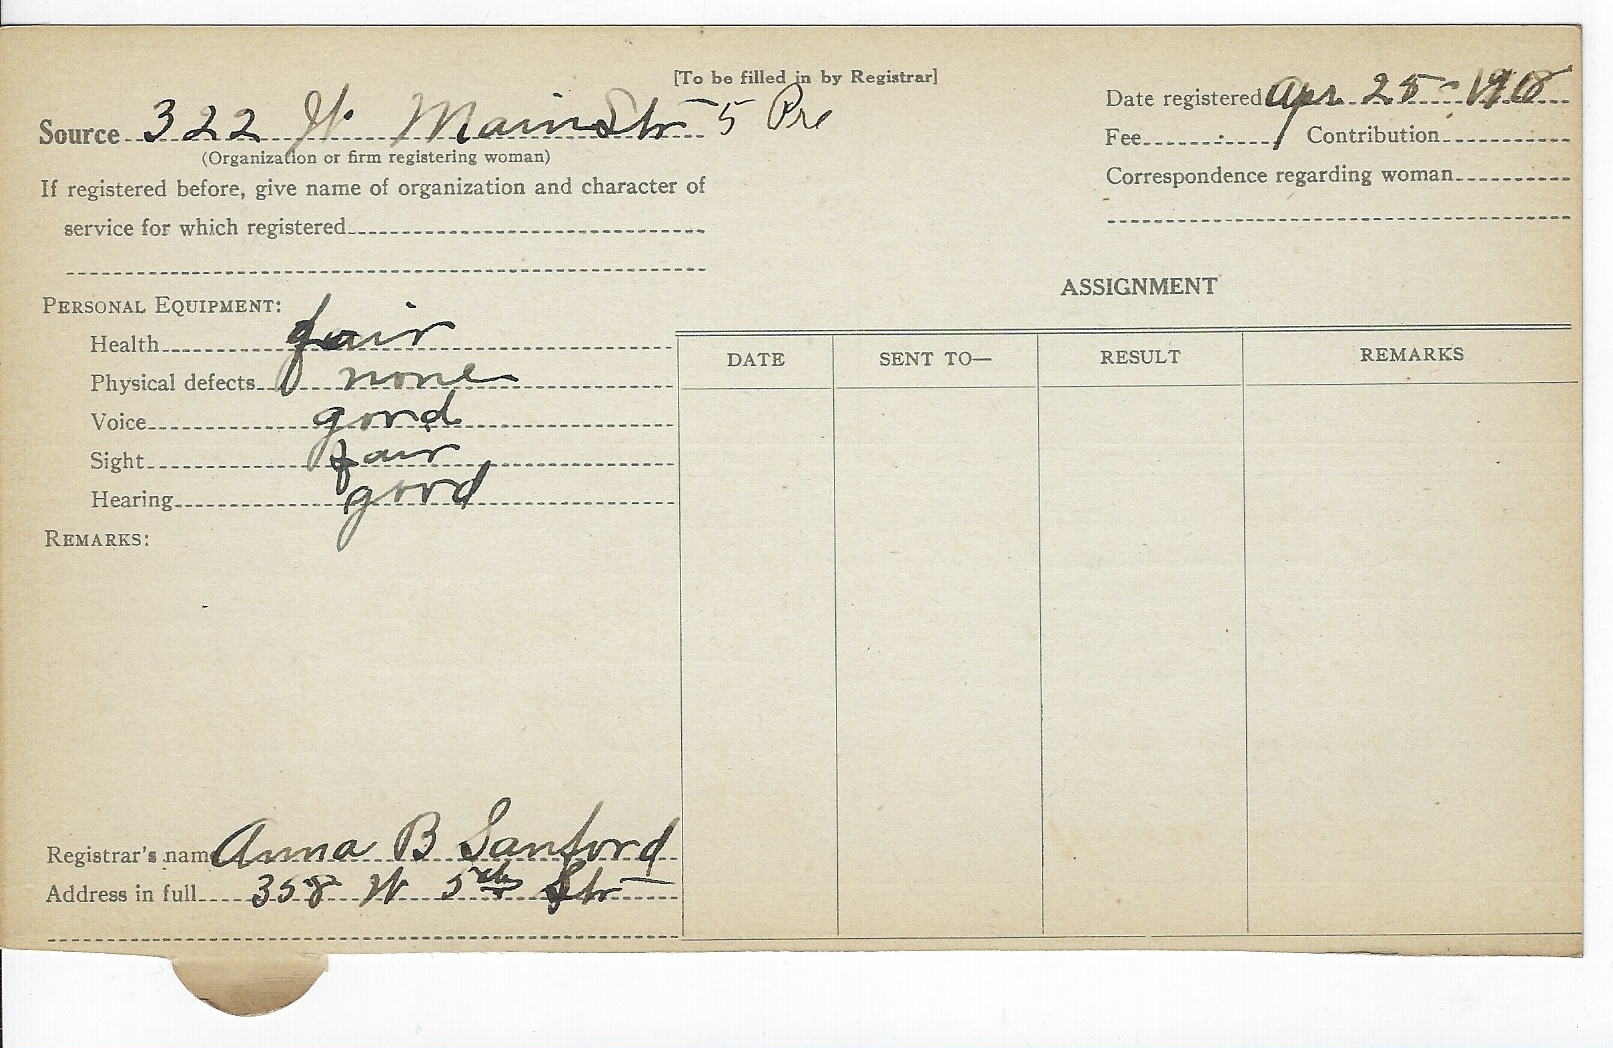 [To be filled in by Registrar]
Source 322 W. Main Str 5 Pre
(Organization or firm registering woman)
If registered before, give name of organization and character of
service for which registered
Date registered Apr. 25 - 1918
Fee Contribution
Correspondence regarding woman
PERSONAL EQUIPMENT:
Health fair
Physical defects none
Voice good
Sight fair
Hearing good
REMARKS:
ASSIGNMENT
DATE SENT TO— RESULT REMARKS
Registrar's name Anna B Sanford
Address in full 358 W 5th Str